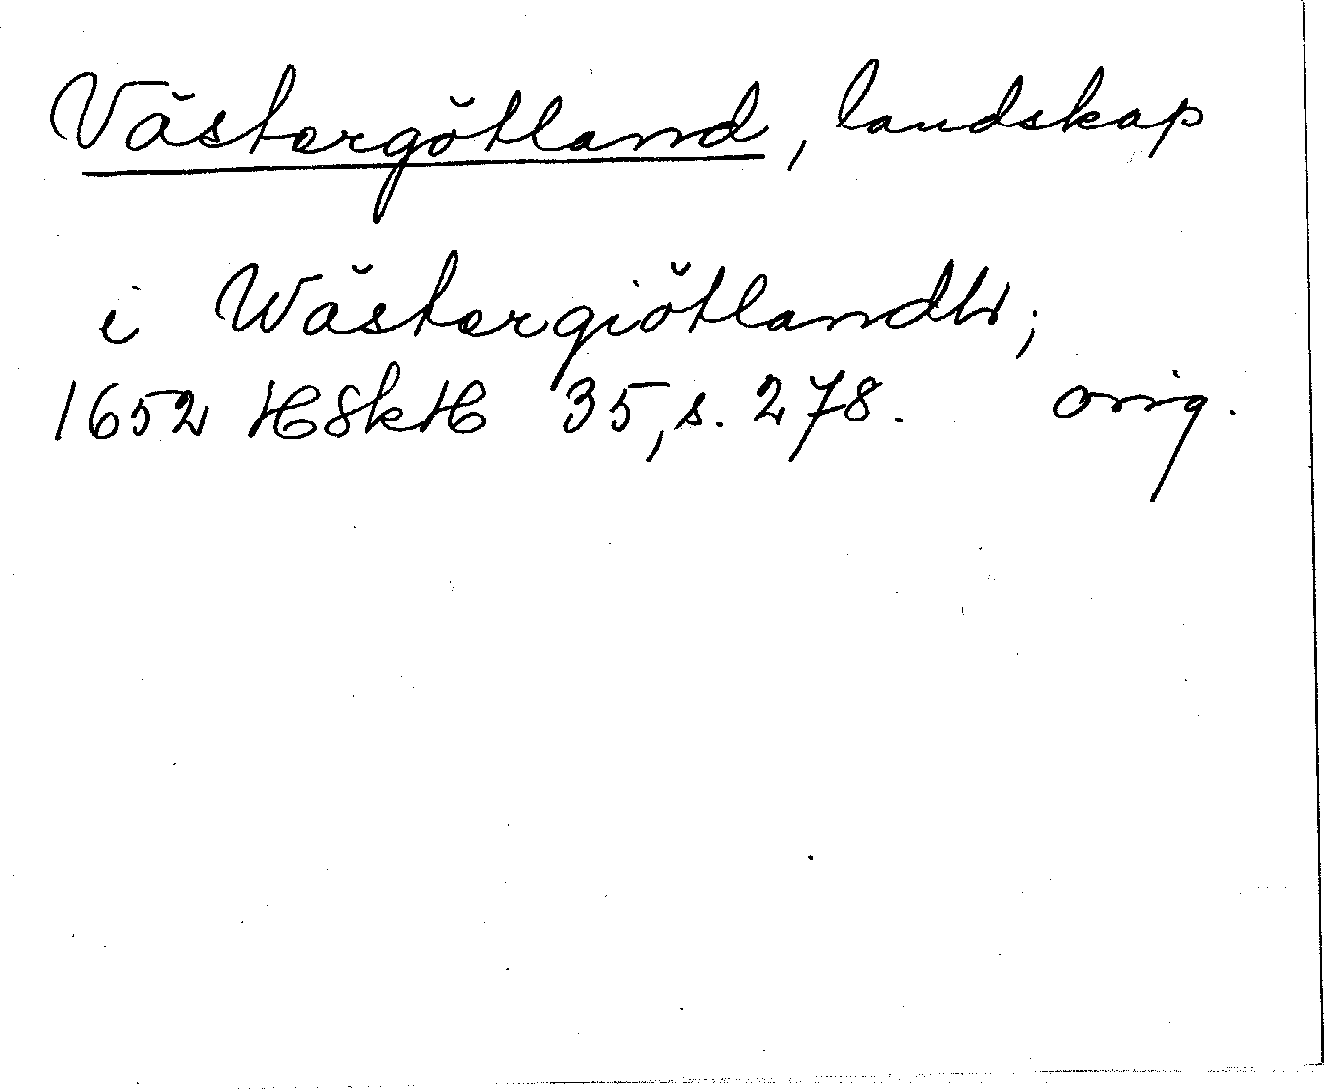 Västergötland, landskap
i Wästergiötlandh;
1652 HSkH 35, s. 278. orig.